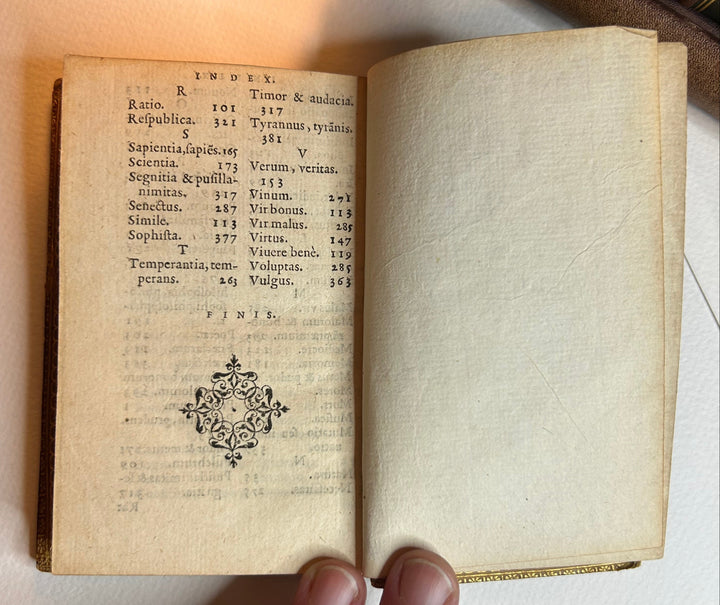 INDEX.
R
Ratio. 101
Reſpublica. 321
S
Sapientia, ſapiẽs. 165
Scientia. 173
Segnitia & puſilla-
nimitas. 317
Senectus. 287
Simile. 113
Sophiſta. 377
T
Temperantia, tem-
perans. 263
Timor & audacia.
317
Tyrannus, tyrãnis.
381
V
Verum, veritas.
153
Vinum. 271
Vir bonus. 113
Vir malus. 285
Virtus. 147
Viuere benè. 119
Voluptas. 285
Vulgus. 363
FINIS.